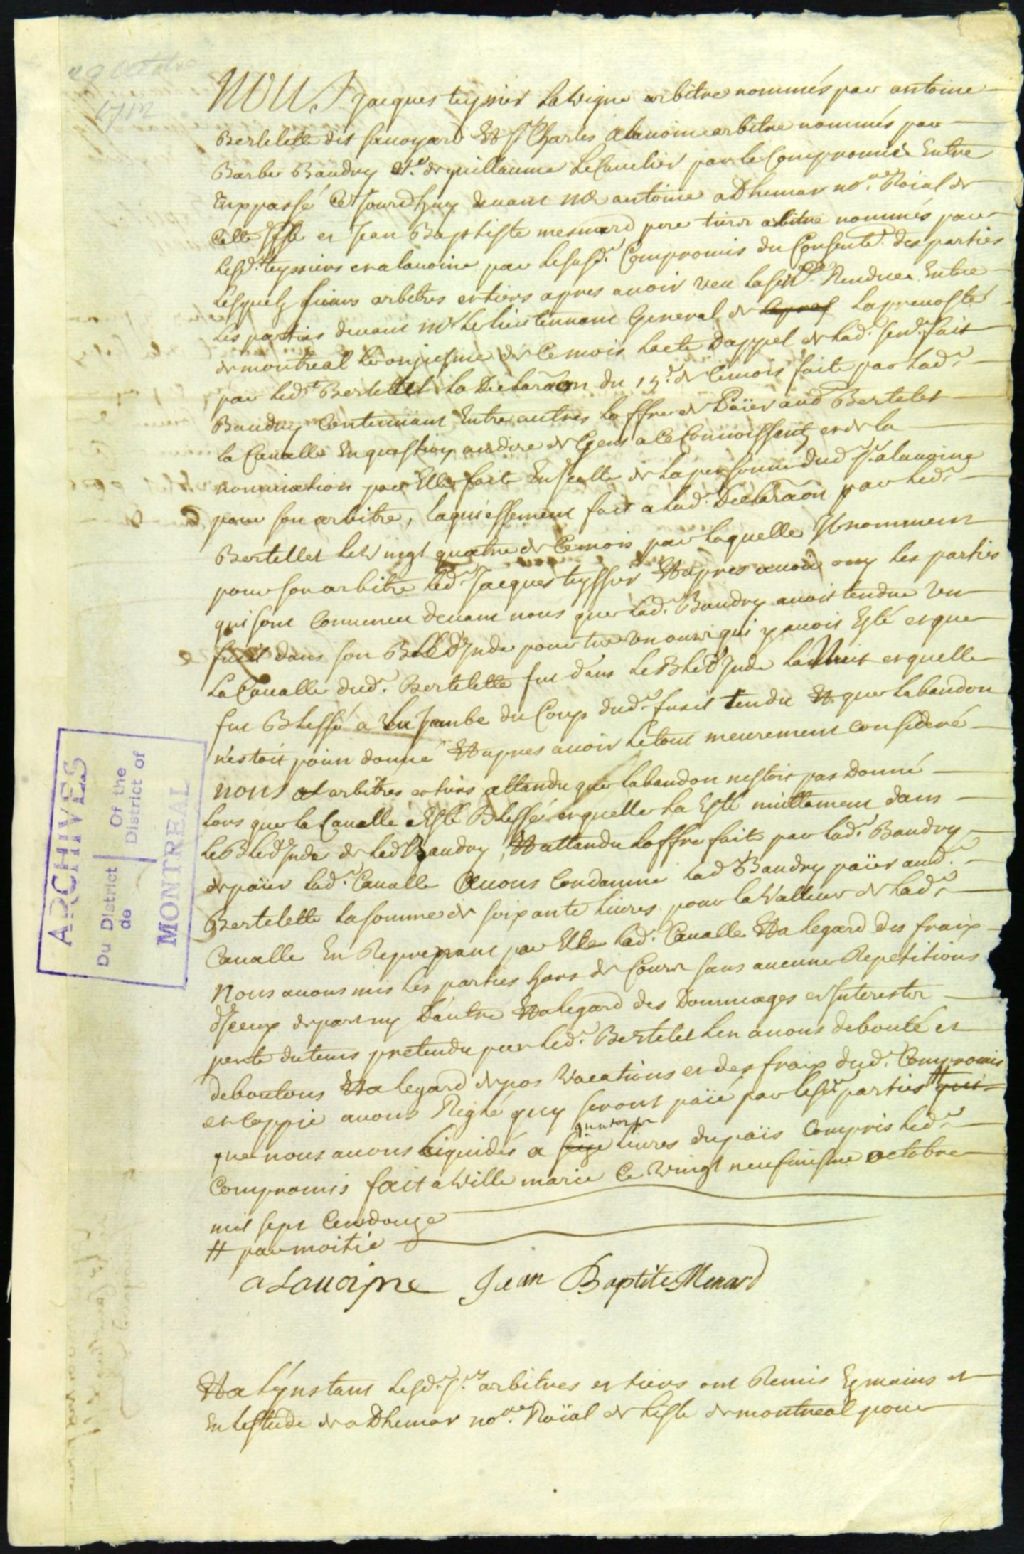 29 octobre
1712
NOUS Jacques teyssier Lavigne arbitre nommés par antoine
Bertelette dit savoyard Et Sr Charles Alavoine arbitre nommés par
Barbe Baudry ve. de guillaume LeCavelier par le Compromis Entre
Eux passé Cejourdhuy devant Me antoine aDhemar nore. Roial de
Cette Isle et Jean Baptiste mesnard pere tiers arbitre nommés par
Lesd. teyssiers et alavoine par lesusd. Compromis du Consentet. des parties
Lesquelz sieurs arbitres et tiers apres avoir veu la sentce. Rendue Entre
Les parties devant Mr le lieutennant General de La prevosté
de montreal Le onziesme de Ce mois Lacte Dappel de lad. sence. fait
par led. Bertelet La Declaraon du 15e. de Cemois faite par lad.
Baudry Contennant Entre autres Loffre de Païer aud Bertelet
la Cavalle En question au dire de Gens a Ce Connoissent et de la
nomination par Elle faite En Icelle de la personne dud Sr. alavoine
pour son arbitre, laquiessement fait a lad. Declaraon par led.
Bertellet le vingt quatre de Cemois par laquelle Il nomment
pour son arbitre led. Jacques teyssier Et apres avoir ouy les parties
qui sont Convenue devant nous que lad. Baudry avoit tendue un
fusil dans son Bled dInde pour tuer un ours qui y avoit Esté et que
La Cavalle dud. Bertelette fut dans le Bled dInde La Nuit et quelle
fut Blessé a la Jambe du Coup dud. fusil tendu Et que labandon
nestoit poin donné Et apres avoir le tout meurement consideré
nous arbitres et tiers attendu que labandon nestoit pas Donné
Lors que la Cavalle a Esté Blessée et quelle la Esté nuittament dans
le Bled dInde de lad Baudry, Et attendu loffre fait par lad. Baudry
de païer lad. Cavalle Avons Condamne lad Baudry païer aud.
Bertelette la somme de soixante livres pour la Valleur de lad.
Cavalle En Reprenant par Elle lad. Cavalle Et a legard des fraix
Nous avons mis les parties hors de Cour sans aucune Repetitions
diceux de part ny dautre Et a legard des Dommages et Interestz
perte du tems pretendu par led. Bertelet Len avons debouté et
deboutons Et a legard de nos Vacations et des fraix dud. Compromis
et Coppie avons Reglé quy seront paié par lesd. parties #
que nous avons Liquidés a livres du païs Compris led.
Compromis fait a Ville marie Ce Vingt neufiesme octobre
mil sept Cent douze
# par moitié
aLavoine Jean Baptite Menard
Et a lynstant Lesd. Srs. arbitres et tiers ont Remis Es mains et
En lestude de aDhemar nore. Roïal de lisle de montreal pour
ARCHIVES
Du District Of the
de District of
MONTREAL